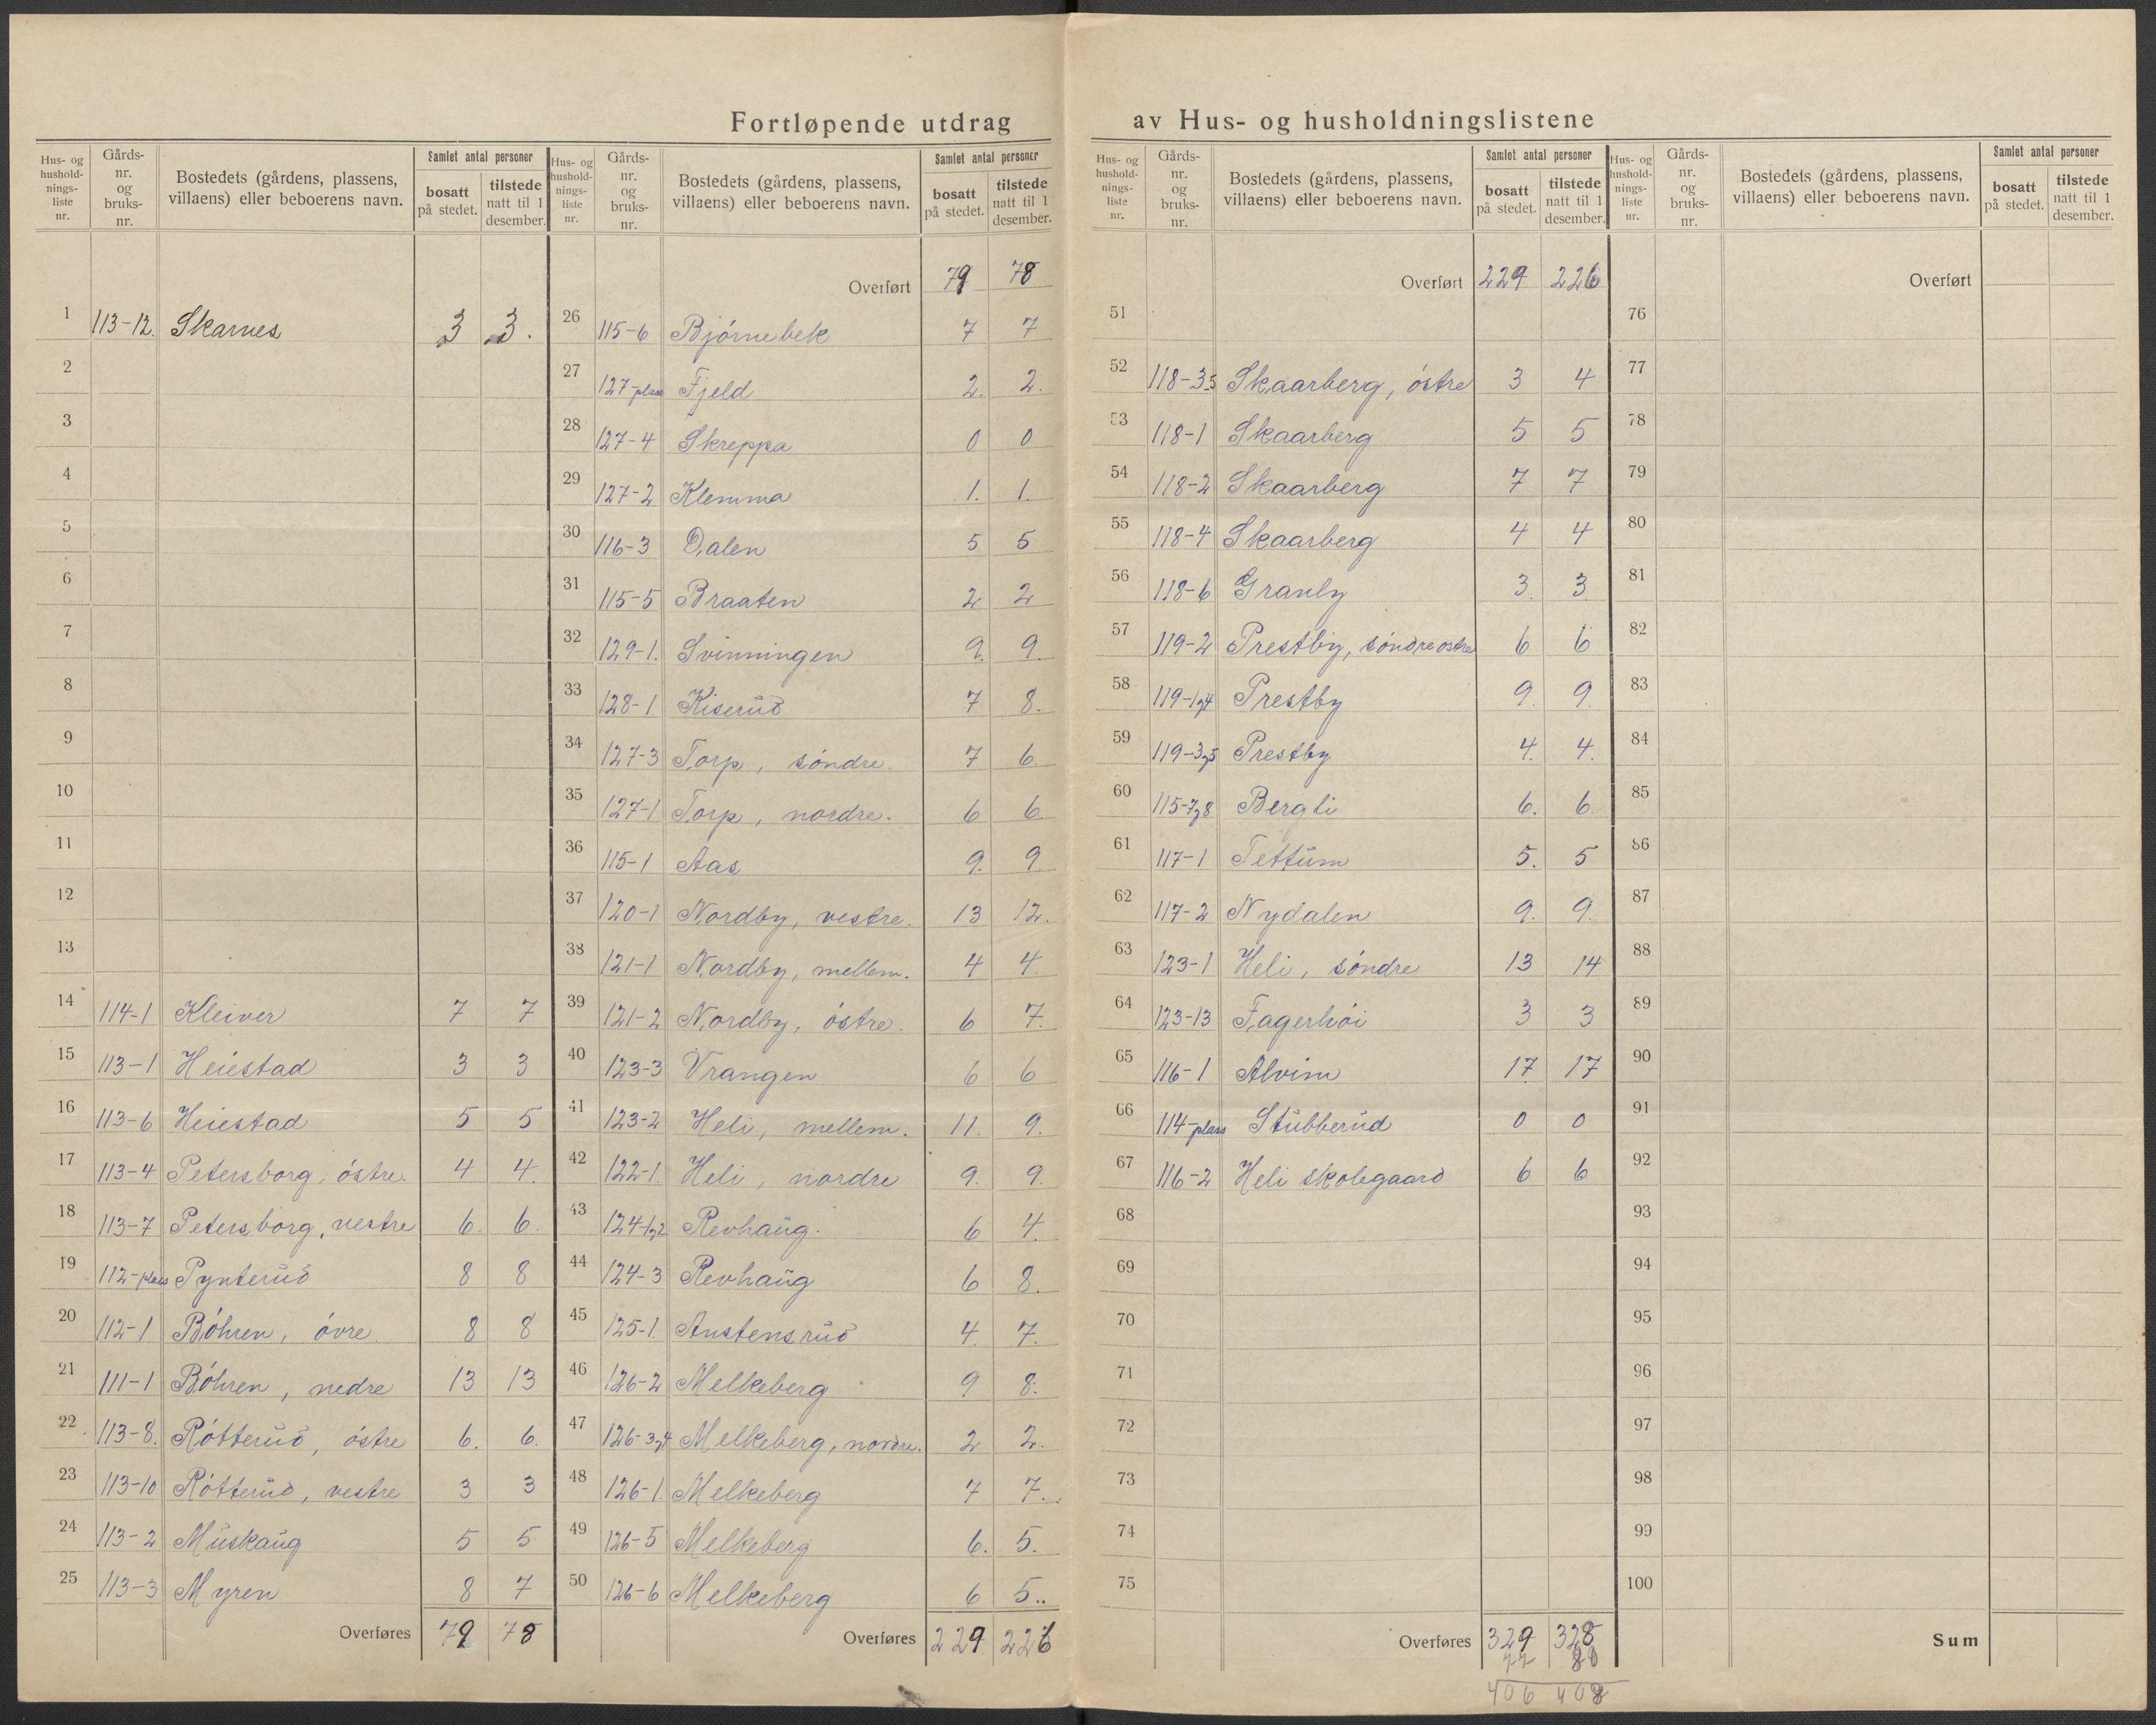 Fortløpende utdrag av Hus- og husholdningslistene
Hus- og husholdningsliste nr. | Gårdsnr. og bruksnr. | Bostedets (gårdens, plassens, villaens) eller beboerens navn. | Samlet antal personer bosatt på stedet. | tilstede natt til 1 desember.
1 113-12. Skarnes 3 3.
2
3
4
5
6
7
8
9
10
11
12
13
14 114-1 Kleiver 7 7
15 113-1 Heiestad 3 3
16 113-6 Heiestad 5 5
17 113-4 Petersborg, óstre. 4 4.
18 113-7 Petersborg, vestre 6. 6.
19 112-plass Pynterŭd 8 8
20 112-1 Bóhren, óvre 8 8
21 111-1 Bóhren, nedre 13 13
22 113-8. Rótterŭd, óstre 6. 6.
23 113-10 Rótterŭd, vestre 3 3
24 113-2 Mŭskaŭg 5 5
25 113-3 Myren 8 7
Overføres 79 78
Hus- og husholdningsliste nr. | Gårdsnr. og bruksnr. | Bostedets (gårdens, plassens, villaens) eller beboerens navn. | Samlet antal personer bosatt på stedet. | tilstede natt til 1 desember.
Overført 79 78
26 115-6 Bjórnebek 7 7
27 127-plass Fjeld 2. 2.
28 127-4 Skreppa 0 0
29 127-2 Klemma 1. 1.
30 116-3 Dalen 5 5
31 115-5 Braaten 2 2
32 129-1. Svinningen 9. 9.
33 128-1 Kiserŭd 7 8.
34 127-3 Torp, sóndre 7 6.
35 127-1 Torp, nordre. 6 6.
36 115-1 Aas 9. 9.
37 120-1 Nordby, vestre. 13 12.
38 121-1 Nordby, mellem. 4 4.
39 121-2 Nordby, óstre. 6 7.
40 123-3 Vrangen 6 6
41 123-2 Heli, mellem. 11. 9.
42 122-1. Heli, nordre 9. 9.
43 124-1,2 Revhaŭg. 6 4.
44 124-3 Revhaŭg 6 8.
45 125-1. Anstensrŭd 4. 7.
46 126-2 Melkeberg 9 8.
47 126-3,4 Melkeberg, nordre. 2 2.
48 126-1. Melkeberg 7 7.
49 126-5 Melkeberg 6. 5.
50 126-6 Melkeberg 6 5..
Overføres 229 226
Hus- og husholdningsliste nr. | Gårdsnr. og bruksnr. | Bostedets (gårdens, plassens, villaens) eller beboerens navn. | Samlet antal personer bosatt på stedet. | tilstede natt til 1 desember.
Overført 229 226
51
52 118-3,5 Skaarberg, óstre 3 4
53 118-1 Skaarberg 5 5
54 118-2 Skaarberg 7 7
55 118-4 Skaarberg 4 4
56 118-6 Granly 3. 3
57 119-2 Prestby, sóndre ostre 6 6
58 119-1,4 Prestby 9. 9.
59 119-3,5 Prestby 4. 4.
60 115-7,8 Bergli 6. 6.
61 117-1 Tettŭm 5. 5
62 117-2 Nydalen 9. 9.
63 123-1 Heli, sóndre 13 14
64 123-13 Fagerhói 3 3
65 116-1 Alvim 17. 17
66 114-plass Stŭbberŭd 0 0
67 116-2 Heli skolegaard 6 6
68
69
70
71
72
73
74
75
Overføres 329 328
77 80
406 408
Hus- og husholdningsliste nr. | Gårdsnr. og bruksnr. | Bostedets (gårdens, plassens, villaens) eller beboerens navn. | Samlet antal personer bosatt på stedet. | tilstede natt til 1 desember.
Overført
76
77
78
79
80
81
82
83
84
85
86
87
88
89
90
91
92
93
94
95
96
97
98
99
100
Sum